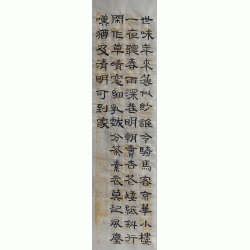 世味年來薄似紗誰令騎馬客京華小樓
一夜聽春雨深巷明朝賣杏花矮紙斜行
閑作草晴窗細乳戲分茶素衣莫起風塵
嘆猶及清明可到家